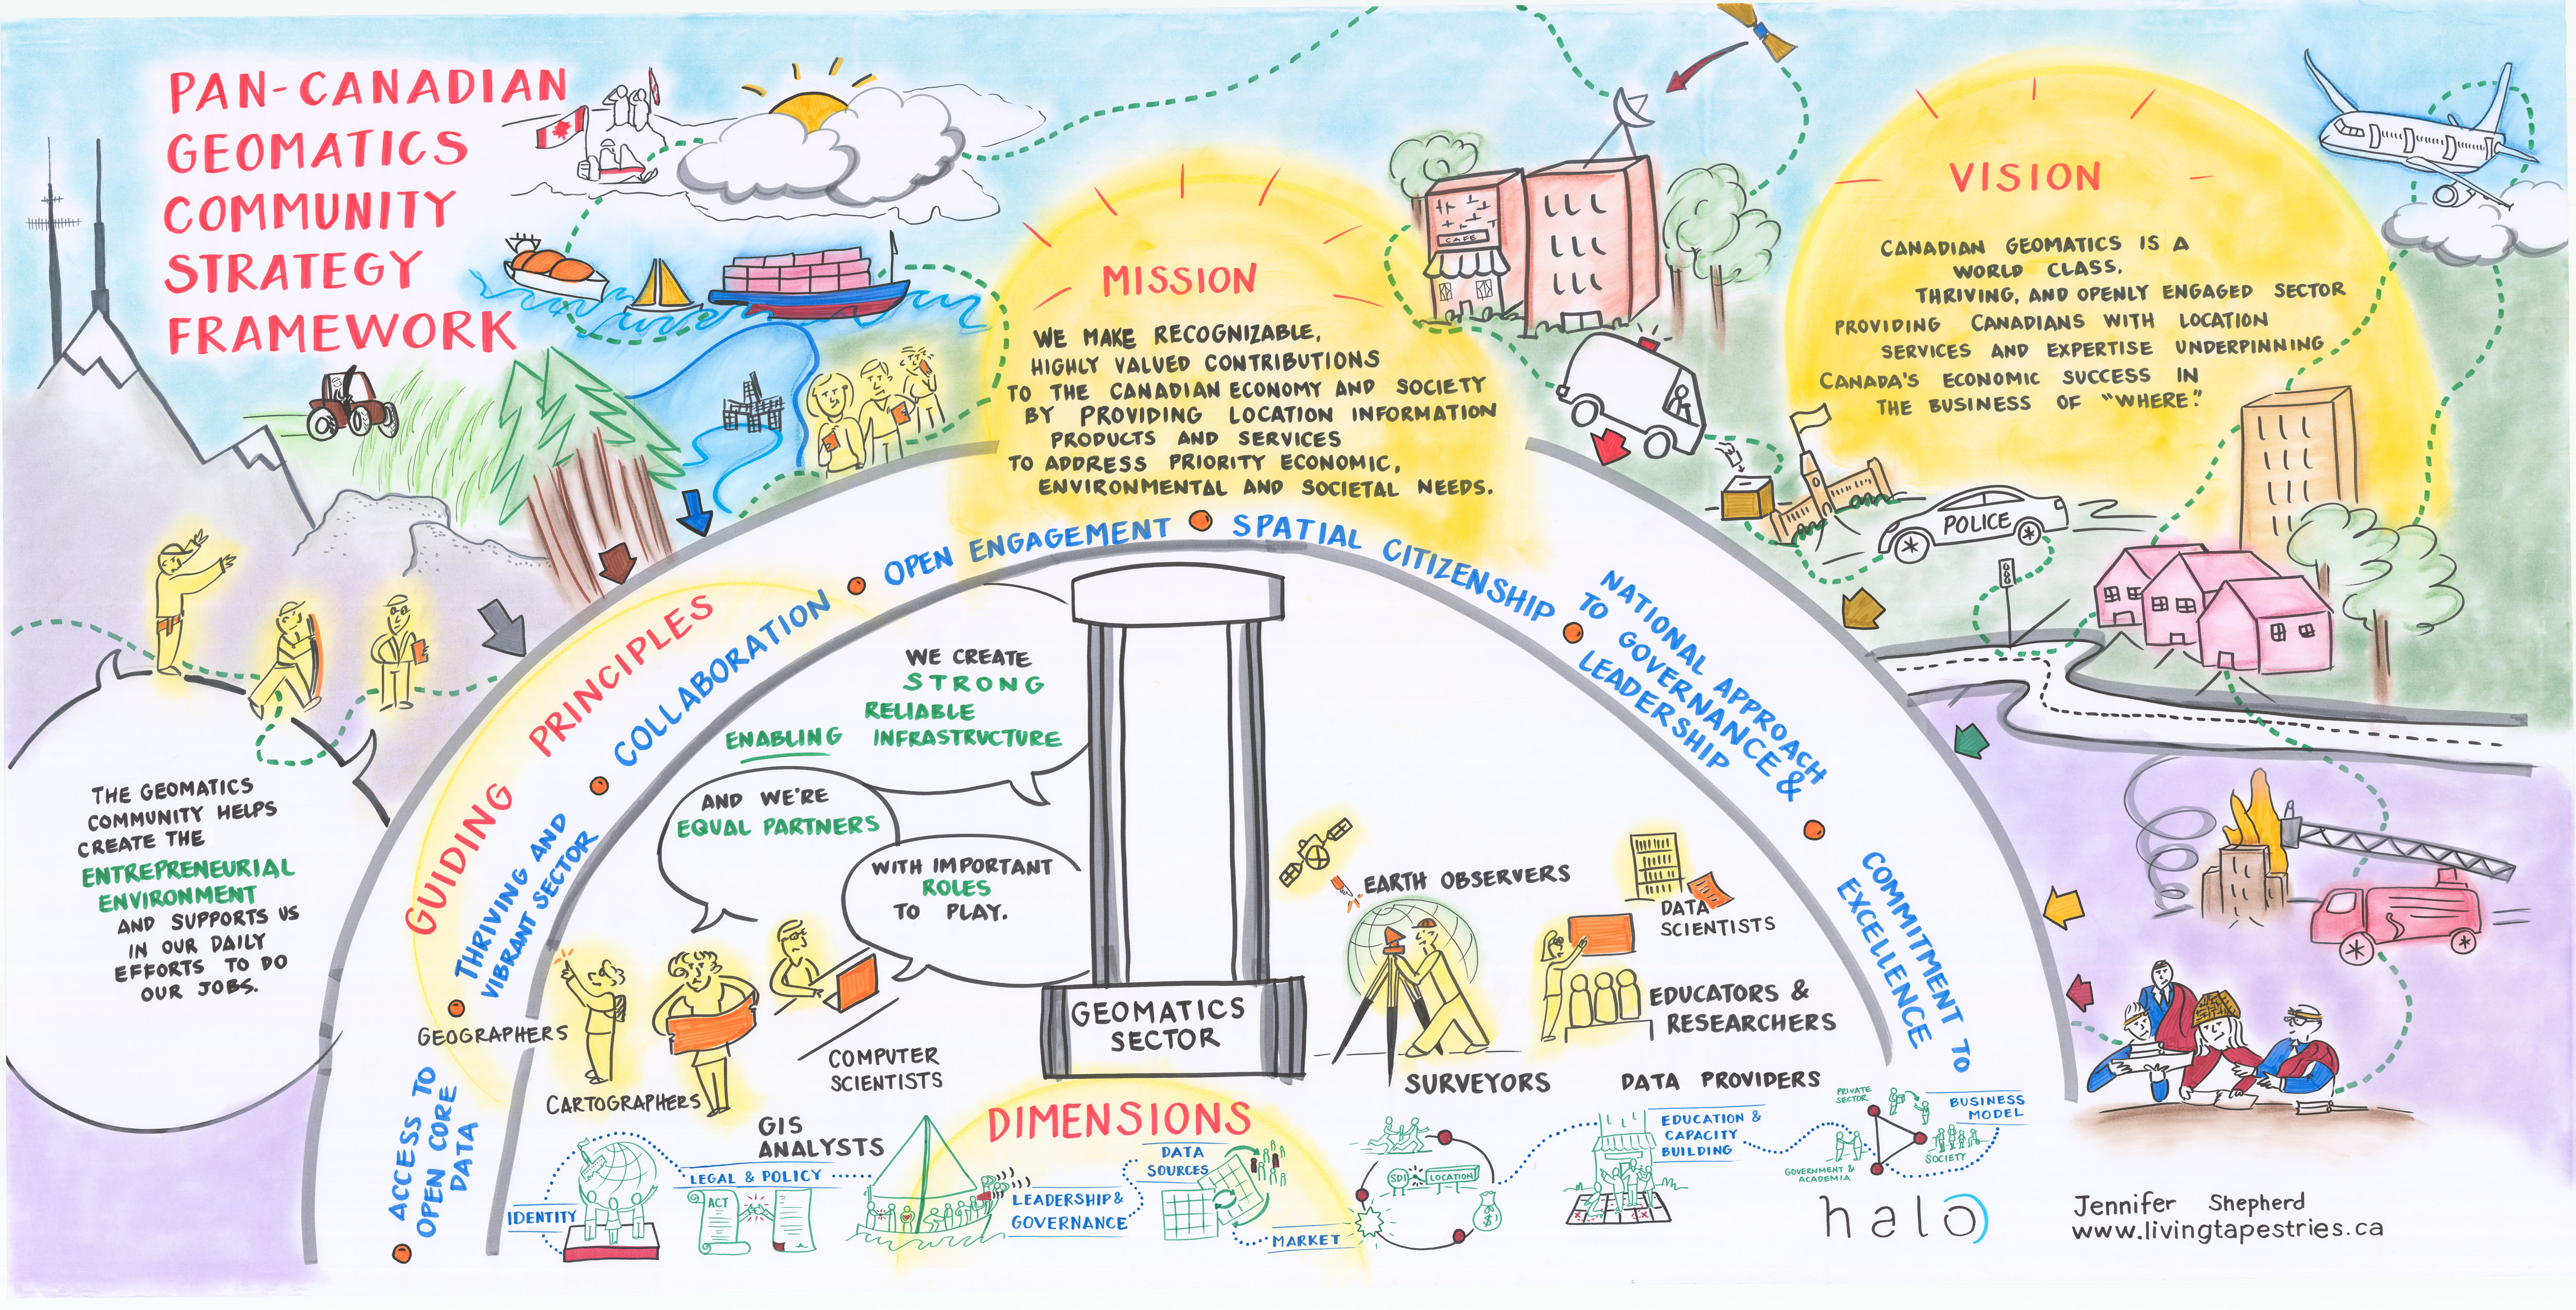 PAN-CANADIAN
GEOMATICS
COMMUNITY
STRATEGY
FRAMEWORK
MISSION
WE MAKE RECOGNIZABLE,
HIGHLY VALUED CONTRIBUTIONS
TO THE CANADIAN ECONOMY AND SOCIETY
BY PROVIDING LOCATION INFORMATION
PRODUCTS AND SERVICES
TO ADDRESS PRIORITY ECONOMIC,
ENVIRONMENTAL AND SOCIETAL NEEDS.
CAFE
VISION
CANADIAN GEOMATICS IS A
WORLD CLASS,
THRIVING, AND OPENLY ENGAGED SECTOR
PROVIDING CANADIANS WITH LOCATION
SERVICES AND EXPERTISE UNDERPINNING
CANADA'S ECONOMIC SUCCESS IN
THE BUSINESS OF "WHERE."
POLICE
THE GEOMATICS
COMMUNITY HELPS
CREATE THE
ENTREPRENEURIAL
ENVIRONMENT
AND SUPPORTS US
IN OUR DAILY
EFFORTS TO DO
OUR JOBS.
GUIDING PRINCIPLES
ACCESS TO
OPEN CORE
DATA
THRIVING AND
VIBRANT SECTOR
COLLABORATION
OPEN ENGAGEMENT
SPATIAL CITIZENSHIP
NATIONAL APPROACH
TO GOVERNANCE &
LEADERSHIP
COMMITMENT TO
EXCELLENCE
WE CREATE
STRONG
RELIABLE
ENABLING INFRASTRUCTURE
AND WE'RE
EQUAL PARTNERS
WITH IMPORTANT
ROLES
TO PLAY.
GEOMATICS
SECTOR
GEOGRAPHERS
CARTOGRAPHERS
COMPUTER
SCIENTISTS
GIS
ANALYSTS
EARTH OBSERVERS
DATA
SCIENTISTS
EDUCATORS &
RESEARCHERS
SURVEYORS
DATA PROVIDERS
DIMENSIONS
IDENTITY
LEGAL & POLICY
ACT
LEADERSHIP &
GOVERNANCE
DATA
SOURCES
MARKET
SDI
LOCATION
$
EDUCATION &
CAPACITY
BUILDING
PRIVATE
SECTOR
BUSINESS
MODEL
SOCIETY
GOVERNMENT &
ACADEMIA
halo
Jennifer Shepherd
www.livingtapestries.ca